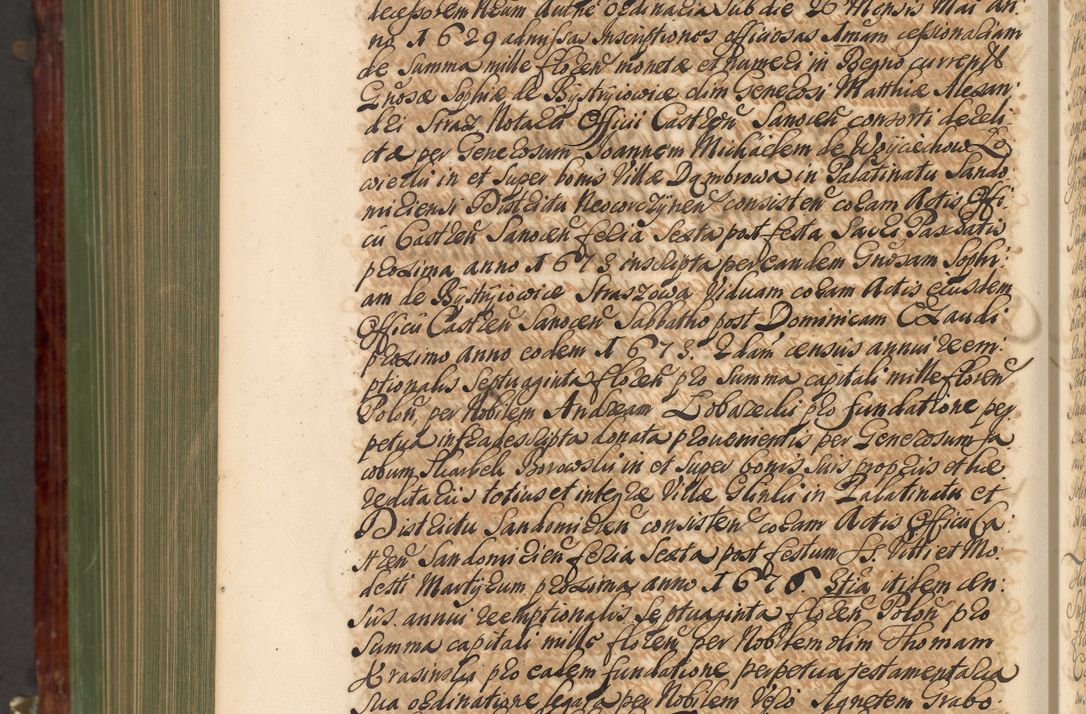 decessorem Meum Authe Ordinaria Sub die 26 Mensis Mai an:
no 1629 admissas Inscriptiones officiosas Imam cessionaliam
de Summa mille floren monetæ et numeri in Regno currentt
Gnosæ Sophiæ de Bystryiowice olim Generosi Matthiæ Alexan
dri Straz Notarii Officii Castren Sanocen consorti dereli
ctæ per Generosum Joannem Michaelem de Woyciechow Zo
wiecki in et Super bonis Villæ Dąmbrowa in Palatinatu Sando
miriensi Districtu Neocorczynen consisten coram Actis Offi
cii Castren Sanocen feria Sexta post festa Sacri Paschatis
proxima anno 1673 inscripta per eandem Gnosam Sophi
am de Bystryiowice Straszowa Viduam coram Actis eiusdem
Officii Castren Sanocen Sabbatho post Dominicam Exaudi
proximo anno eodem 1673. 2dam census annui reem:
ptionalis Septuaginta floren pro Summa capitali mille floren
Polon, per Nobilem Andream Lobarecki pro fundatione per
petua infrascripta donata provenientis per Generosum Ja
cobum Skarbek Borowski in et Super bonis Suis propriis et hæ
reditariis totius et integræ Villæ Glinki in Palatinatu et
Districtu Sandomirien consisten coram Actis Officii Ca
stren Sandomirien feria Sexta post festum SS. Viti et Mo
desti Martyrum proxima anno 1676. 3tia itidem cen:
sus annui reemptionalis Septuaginta floren Polon pro
Summa capitali mille floren per Nobilem olim Thomam
Krasinski pro eadem fundatione perpetua testamentaria
Sua ordinatione legata per Nobilem Vero Agnetem Grabo